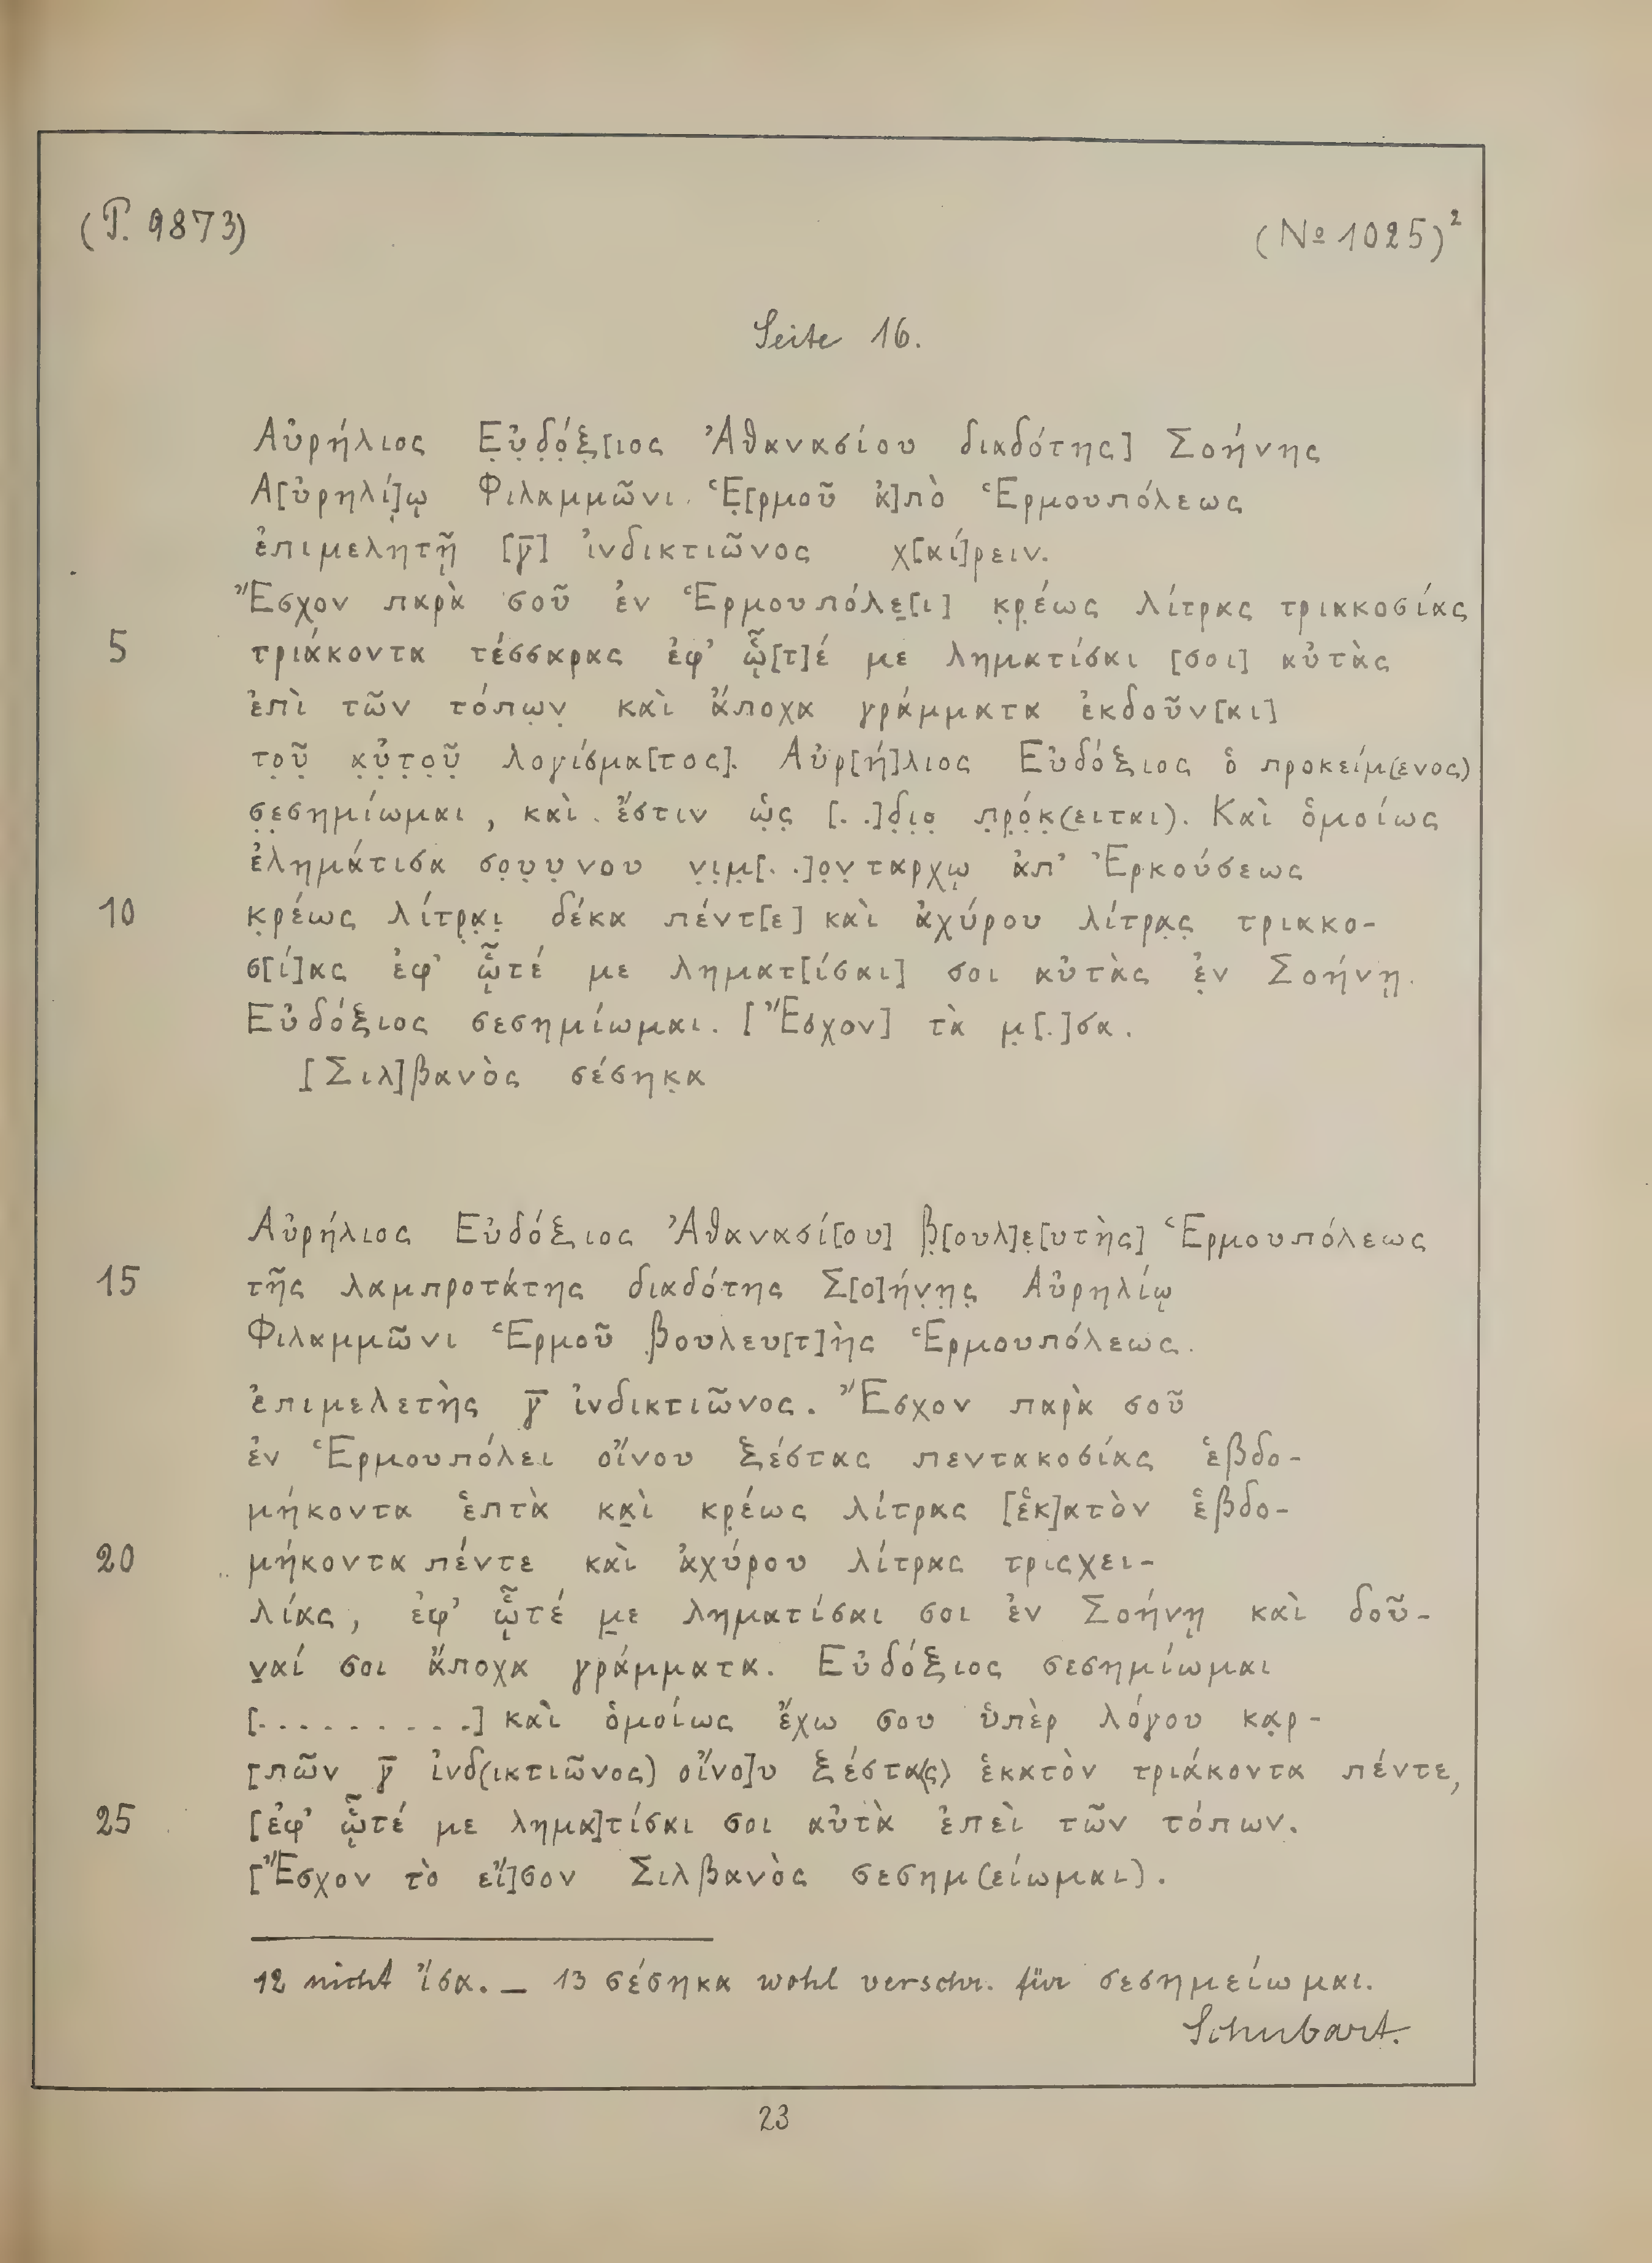 (P. 9873)
(№ 1025)²
Seite 16.
Αὐρήλιος Ε̣ὐ̣δ̣ό̣ξ̣[ιος Ἀθανασίου διαδότης] Σοήνης
Α[ὐρηλί̣]ῳ Φιλαμμῶνι Ἑ̣[ρμοῦ ἀ]πὸ Ἑρμουπόλεως
ἐπιμελητῇ [γ̅] ἰνδικτιῶνος χ[αί]ρειν.
Ἔσχον παρὰ σοῦ ἐν Ἑρμουπόλε̣[ι] κ̣ρ̣έως λίτρας τριακοσίας
5 τριάκοντα τέσσαρας ἐφ’ ᾧ[τ]έ με ληματίσαι [σοι] αὐτὰς
ἐπὶ τῶν τόπω̣ν̣ καὶ ἄποχα γράμματα ἐκδοῦν[αι]
τ̣ο̣ῦ̣ α̣ὐ̣τ̣ο̣ῦ̣ λογίσμα[τος]. Αὐρ[ή]λιος Εὐδόξιος ὁ προκείμ(ενος)
σ̣ε̣σημίωμαι, καὶ ἔστιν ὡ̣ς̣ [. .]δ̣ι̣ο̣ π̣ρ̣ό̣κ̣(ειται). Καὶ ὁμοίως
ἐλημάτισα σο̣υ̣υ̣νου ν̣ι̣μ̣[. .]ο̣ν̣ταρχῳ ἀπ’ Ἑρκούσεως
10 κ̣ρέως λίτρ̣α̣ι̣ δέκα πέντ[ε] καὶ ἀχύρου λίτρα̣ς̣ τριακο-
σ[ί]ας ἐφ’ ᾧτέ με ληματ[ίσαι] σοι αὐτὰς ἐ̣ν Σοήνῃ.
Εὐδόξιος σεσημίωμαι. [Ἔσχον] τὰ μ̣[.]σα.
[Σιλ]βανὸς σέσηκ̣α
Αὐρήλιος Εὐδόξιος Ἀθανασί[ου] β̣[ουλ]ε̣[υτὴς] Ἑρμουπόλεως
15 τῆς λαμπροτάτης διαδότης Σ[ο]ήν̣η̣ς̣ Αὐρηλίῳ
Φιλαμμῶνι Ἑρμοῦ βουλευ[τ]ὴς Ἑρμουπόλεως.
ἐπιμελετὴς γ̅ ἰνδικτιῶνος. Ἔσχον παρὰ σοῦ
ἐν Ἑρμουπόλει οἴνου ξέστας πεντακοσίας ἑβδο-
μήκοντα ἑπτὰ κα̣ὶ κρ̣έως λίτρας [ἑκ]ατὸν ἑβδο-
20 μήκοντα πέντε καὶ ἀχύρου λίτρας τριςχει-
λίας, ἐφ’ ᾧτέ μ̣ε ληματίσαι σοι ἐν Σοήνῃ καὶ δοῦ-
ν̣αί σοι ἄποχα γράμματα. Εὐδόξιος σεσημίωμαι
[. . . . . . . . . .] καὶ ὁμοίως ἔχω σου ὑπὲρ λόγου κα̣ρ-
[πῶν γ̅ ἰνδ(ικτιῶνος) οἴνο]υ ξέστα⟨ς⟩ ἑκατὸν τριάκοντα πέντε,
25 [ἐφ’ ᾧτέ με λημα]τίσαι σοι αὐτὰ ἐπεὶ τῶν τόπων.
[Ἔσχον τὸ εἴ]σον Σιλβανὸς σεσημ(είωμαι).
12 nicht ἴσα. – 13 σέσηκα wohl verschr. für σεσημείωμαι.
Schubart.
23